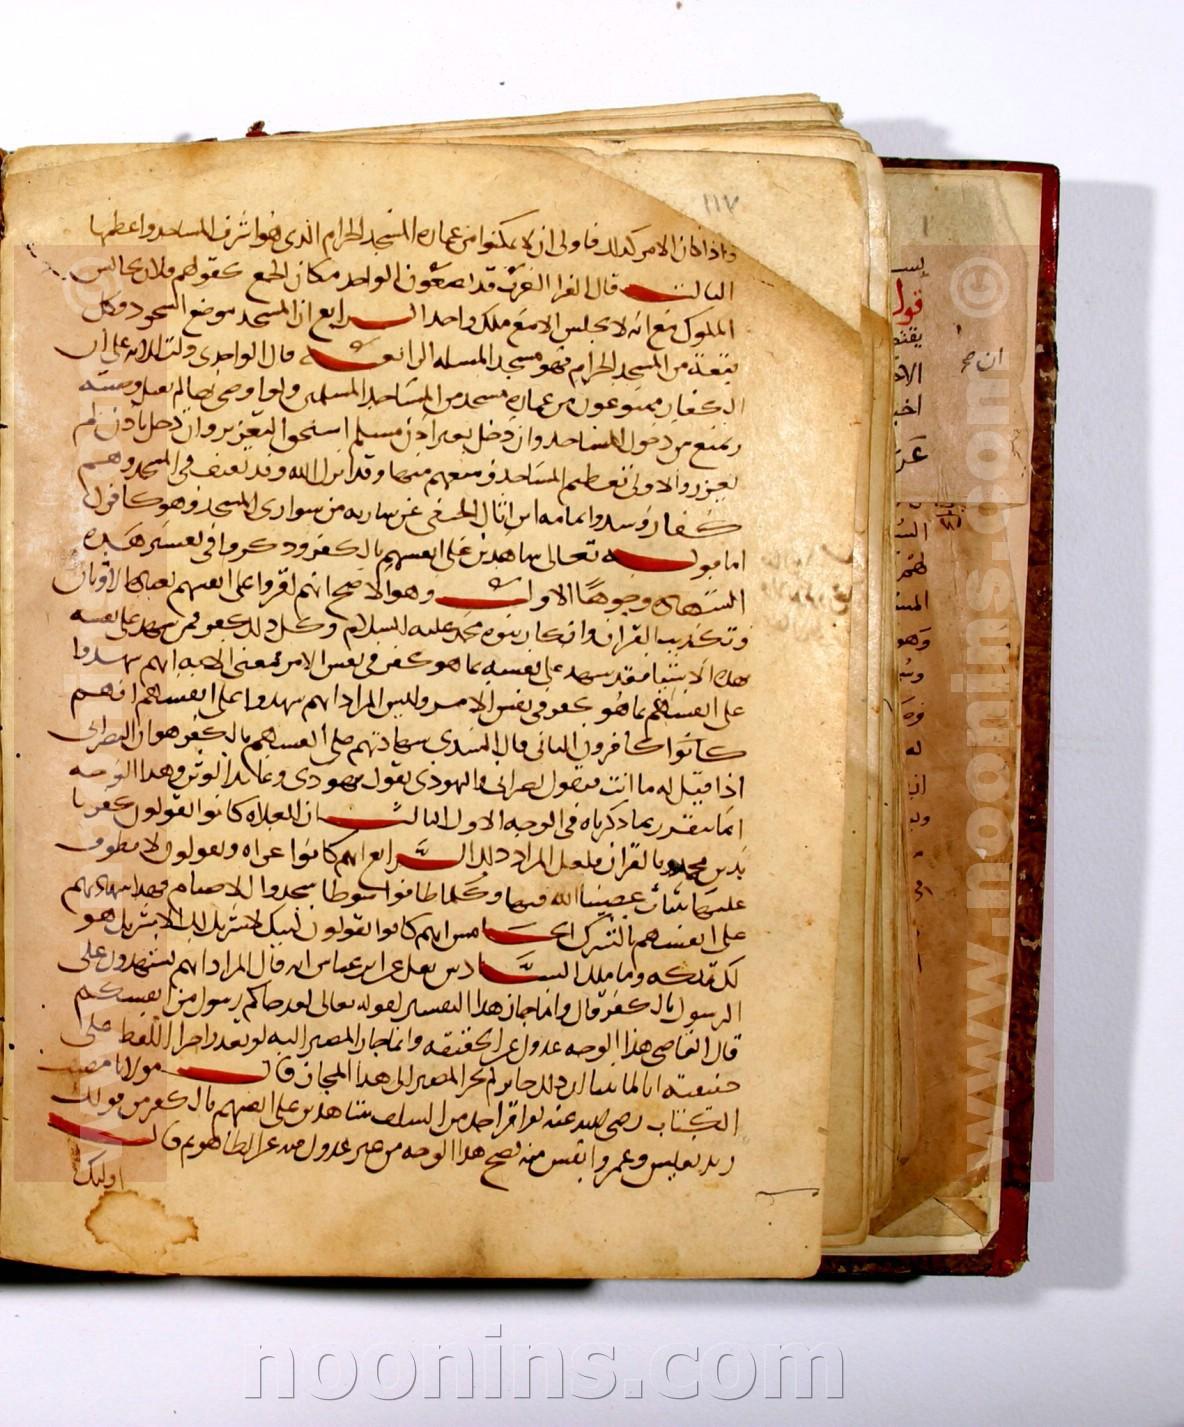 ١١٧
واذا كان الامر كذلك فاولى ان لا يمكنوا من عماره المسجد الحرام الذى هو اشرف المساجد واعظمها
الثالث قال الفرا العرب قد يضعون الواحد مكان الجمع كقولهم فلان يجالس
الملوك مع انه لا يجلس الا مع ملك واحد الرابع ان المسجد موضع السجود فكل
بقعة من المسجد الحرام فهو مسجد المسله الرابعه قال الواحدى دلت الايه على ان
الكفار ممنوعون من عماره مسجد من المساجد المسلمين ولو اوصى بها لم تقبل وصيته
ويمنع من دخول المساجد وان دخل بغير اذن مسلم استحق التعزير وان دخل باذن لم
يعزر والاولى تعظيم المساجد ومنعهم منها وقد انزل الله وفد ثقيف فى المسجد وهم
كفار وشد ثمامه ابن اثال الحنفى فى ساريه من سوارى المسجد وهو كافر
اما قوله تعالى شاهدين على انفسهم بالكفر وذكروا فى تفسير هذه
الشهاده وجوها الاول وهو الاصح انهم اقروا على انفسهم بعباده الاوثان
وتكذيب القران وانكار نبوه محمد عليه السلام وكل ذلك كفر فمن شهد على نفسه
بهذه الاشيا فقد شهد على نفسه بما هو كفر فى نفس الامر فمعنى الايه انهم شهدوا
على انفسهم بما هو كفر فى نفس الامر وليس المراد انهم شهدوا على انفسهم انهم
كانوا كافرون الثانى قال السدى شهادتهم على انفسهم بالكفر هو ان النصرانى
اذا قيل له ما انت فيقول نصرانى واليهودى يقول يهودى وعابد الوثن وهذا الوجه
انما يتقرر بما ذكرناه فى الوجه الاول الثالث ان الغلاه كانوا يقولون كفرنا
بدين محمد وبالقران فلعل المراد ذلك الرابع انهم كانوا عراه ويقولون لا نطوف
عليها بثياب عصينا الله فيها وكلما طافوا شوطا سجدوا للاصنام فهذا شهادتهم
على انفسهم بالشرك الخامس انهم كانوا يقولون لبيك لا شريك لك الا شريك هو
لك تملكه وما ملك السادس نقل عن ابن عباس انه قال المراد انهم يشهدون على
الرسول بالكفر قال وانما جاز هذا التفسير لقوله تعالى لقد جاكم رسول من انفسكم
قال القاضى هذا الوجه عدول عن الحقيقه وانما جاز المصير اليه لو تعذر اجرا اللفظ على
حقيقته اما لما بينا ان ذلك جايز لم يجز المصير الى هذا المجاز قال مولانا مصنف
الكتاب رضى الله عنه لو قرا احد من السلف شاهدين على انفسهم بالكفر من قولك
زيد نفيس وعمرو انفس منه لصح هذا الوجه من غير عدول فيه عن الظاهر ثم قال
اوليك
ان صح
قول
www.noonins.com
noonins.com